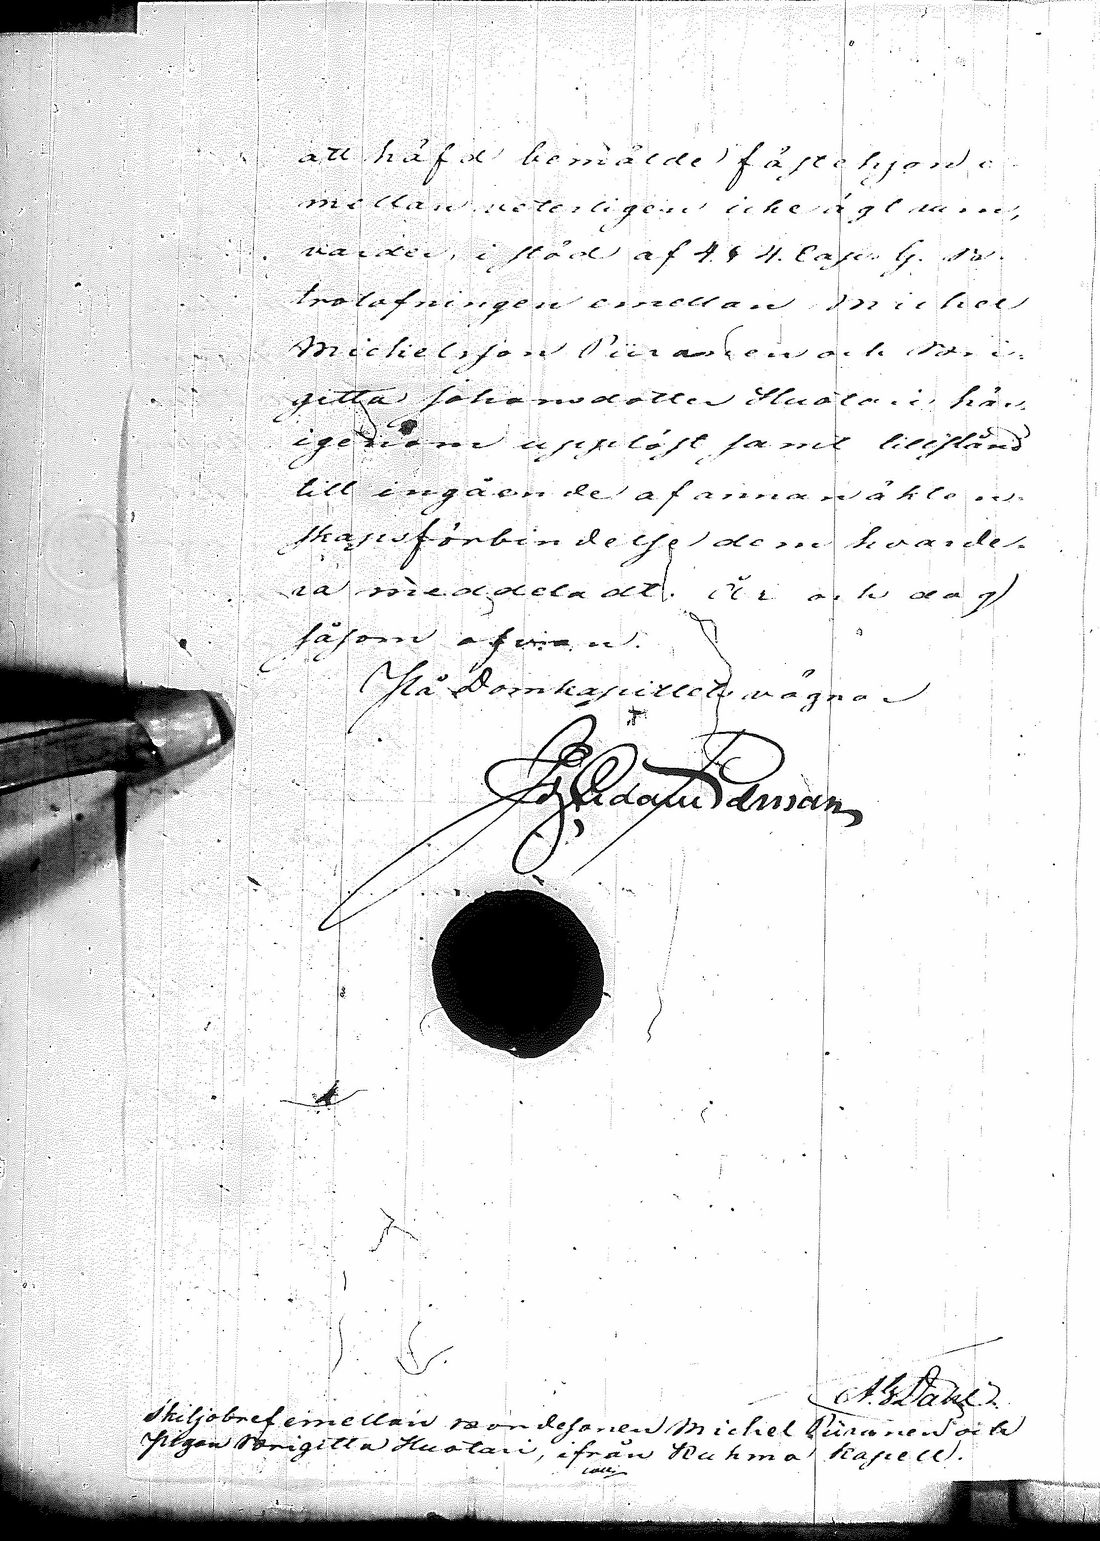 att häfd bemälde fästehjon e-
mellan veterligen icke ägt rum,
varder, i stöd af 4 § 4 Cap. G. B.
trolofningen emellan Michel
Michelsson Piiranen och Bri-
gitta Johansdotter Huotari här-
igenom upplöst samt tillstånd
till ingående af annan äkten-
skapsförbindelse dem hvarde-
ra meddeladt. År och dag
såsom ofvan.
På Domkapitlets vägnar
A. G. Dahl
Skiljobref emellan Bondesonen Michel Piiranen och
Pigan Brigitta Huotari, ifrån Kuhmo Kapell.